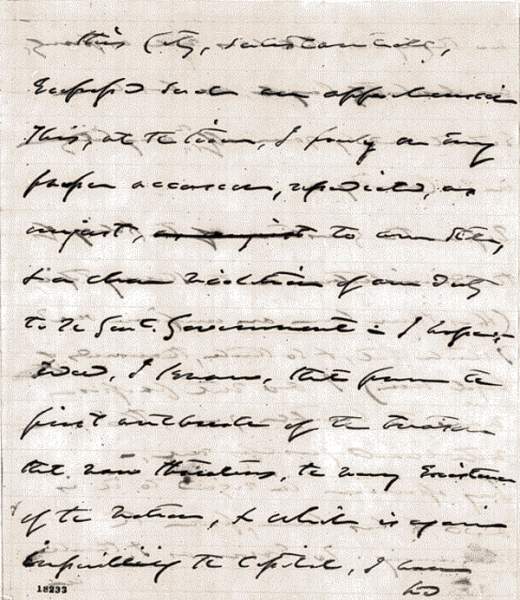 this City, substantially,
Expressed such an apprehension
This, at the time, I on every
proper occasion, repudiated, as
unjust, as unjust to our State,
& a clear violation of our duty
to the Genl. Government - I
I know, that from the
first outbreak of the treason
that now threatens, the very Existence
of the Nation, & which is again
imperilling the Capitol, I
18233